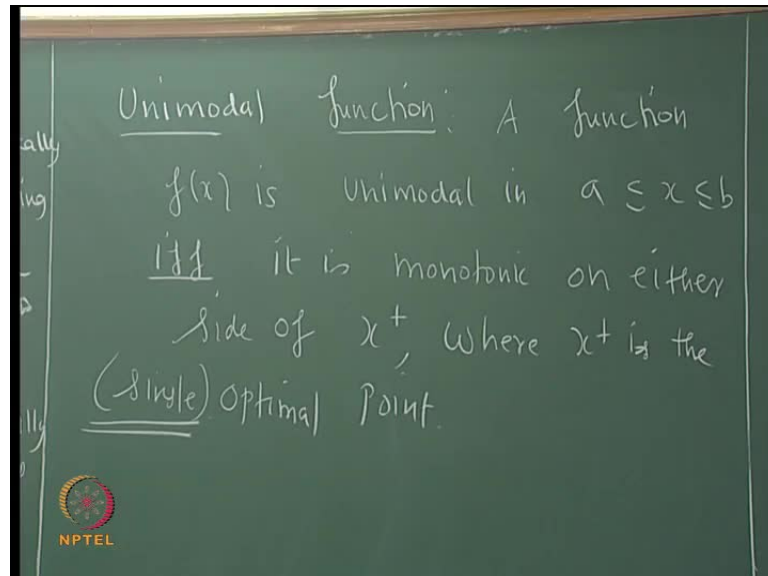 Unimodal function: A function
ally
f(x) is unimodal in a ≤ x ≤ b
ing
iff it is monotonic on either
side of x⁺, where x⁺ is the
(single) optimal point.
lly
NPTEL